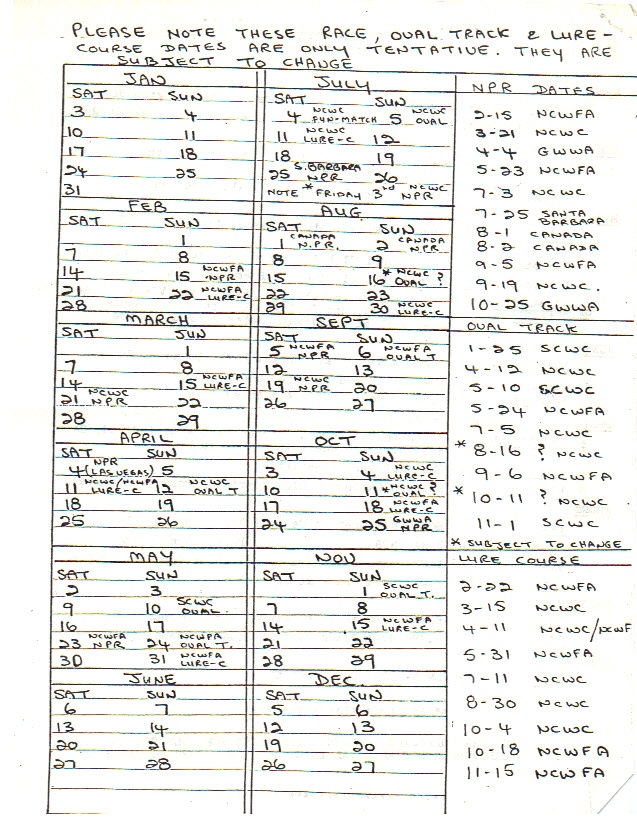 PLEASE NOTE THESE RACE, OVAL TRACK & LURE-
COURSE DATES ARE ONLY TENTATIVE. THEY ARE
SUBJECT TO CHANGE
JAN
SAT SUN
3 4
10 11
17 18
24 25
31
FEB
SAT SUN
1
7 8
14 15 NCWFA NPR
21 22 NCWFA LURE-C
28
MARCH
SAT SUN
1
7 8
14 15 NCWFA LURE-C
21 NCWC NPR 22
28 29
APRIL
SAT SUN
4 NPR (LAS VEGAS) 5
11 NCWC/NCWFA LURE-C 12 NCWC OVAL T
18 19
25 26
MAY
SAT SUN
2 3
9 10 SCWC OVAL
16 17
23 NCWFA NPR 24 NCWFA OVAL T.
30 31 NCWFA LURE-C
JUNE
SAT SUN
6 7
13 14
20 21
27 28
JULY
SAT SUN
4 NCWC FUN-MATCH 5 NCWC OVAL
11 NCWC LURE-C 12
18 19
25 S. BARBARA NPR 26
NOTE * FRIDAY 3rd NCWC NPR
AUG
SAT SUN
1 CANADA N.P.R. 2 CANADA NPR
8 9
15 16 * NCWC ? OVAL
22 23
29 30 NCWC LURE-C
SEPT
SAT SUN
5 NCWFA NPR 6 NCWFA OVAL T
12 13
19 NCWC NPR 20
26 27
OCT
SAT SUN
3 4 NCWC LURE-C
10 11 * NCWC ? OVAL
17 18 NCWFA LURE-C
24 25 GWWA NPR
NOV
SAT SUN
1 SCWC OVAL T.
7 8
14 15 NCWFA LURE-C
21 22
28 29
DEC
SAT SUN
5 6
12 13
19 20
26 27
NPR DATES
2-15 NCWFA
3-21 NCWC
4-4 GWWA
5-23 NCWFA
7-3 NCWC
7-25 SANTA BARBARA
8-1 CANADA
8-2 CANADA
9-5 NCWFA
9-19 NCWC.
10-25 GWWA
OVAL TRACK
1-25 SCWC
4-12 NCWC
5-10 SCWC
5-24 NCWFA
7-5 NCWC
* 8-16 ? NCWC
9-6 NCWFA
* 10-11 ? NCWC
11-1 SCWC
* SUBJECT TO CHANGE
LURE COURSE
2-22 NCWFA
3-15 NCWC
4-11 NCWC/NCWF
5-31 NCWFA
7-11 NCWC
8-30 NCWC
10-4 NCWC
10-18 NCWFA
11-15 NCWFA